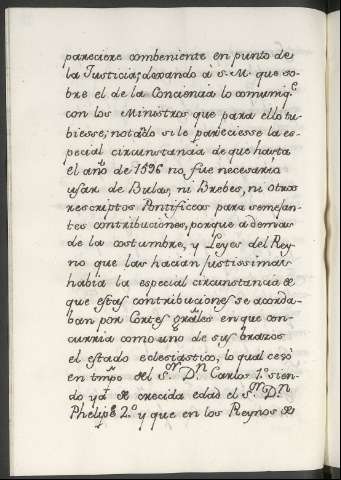 pareciere combeniente en punto de
la Justicia; dexando à S. M. que so-
bre el de la Conciencia lo comuniq.ᵉ
con los Ministros que para ello tu-
biesse; notado si le pareciesse la es-
pecial circunstancia de que hasta
el año de 1596 no fue necesario
usar de Bulas, ni Brebes, ni otros
rescriptos Pontificos para semejan-
tes contribuciones, porque ademas
de la costumbre, y Leyes del Rey-
no que las hacian justissimas
habia la especial circunstancia de
que estas contribuciones se acorda-
ban por Cortes gräles en que con-
curria como uno de sus brazos
el estado eclesiastico, lo qual cesó
en tmpo del S.ᵒʳ D.ⁿ Carlos 1.º sien-
do yá de crecida edad el S.ᵒʳ D.ⁿ
Phelipe 2.º y que en los Reynos de